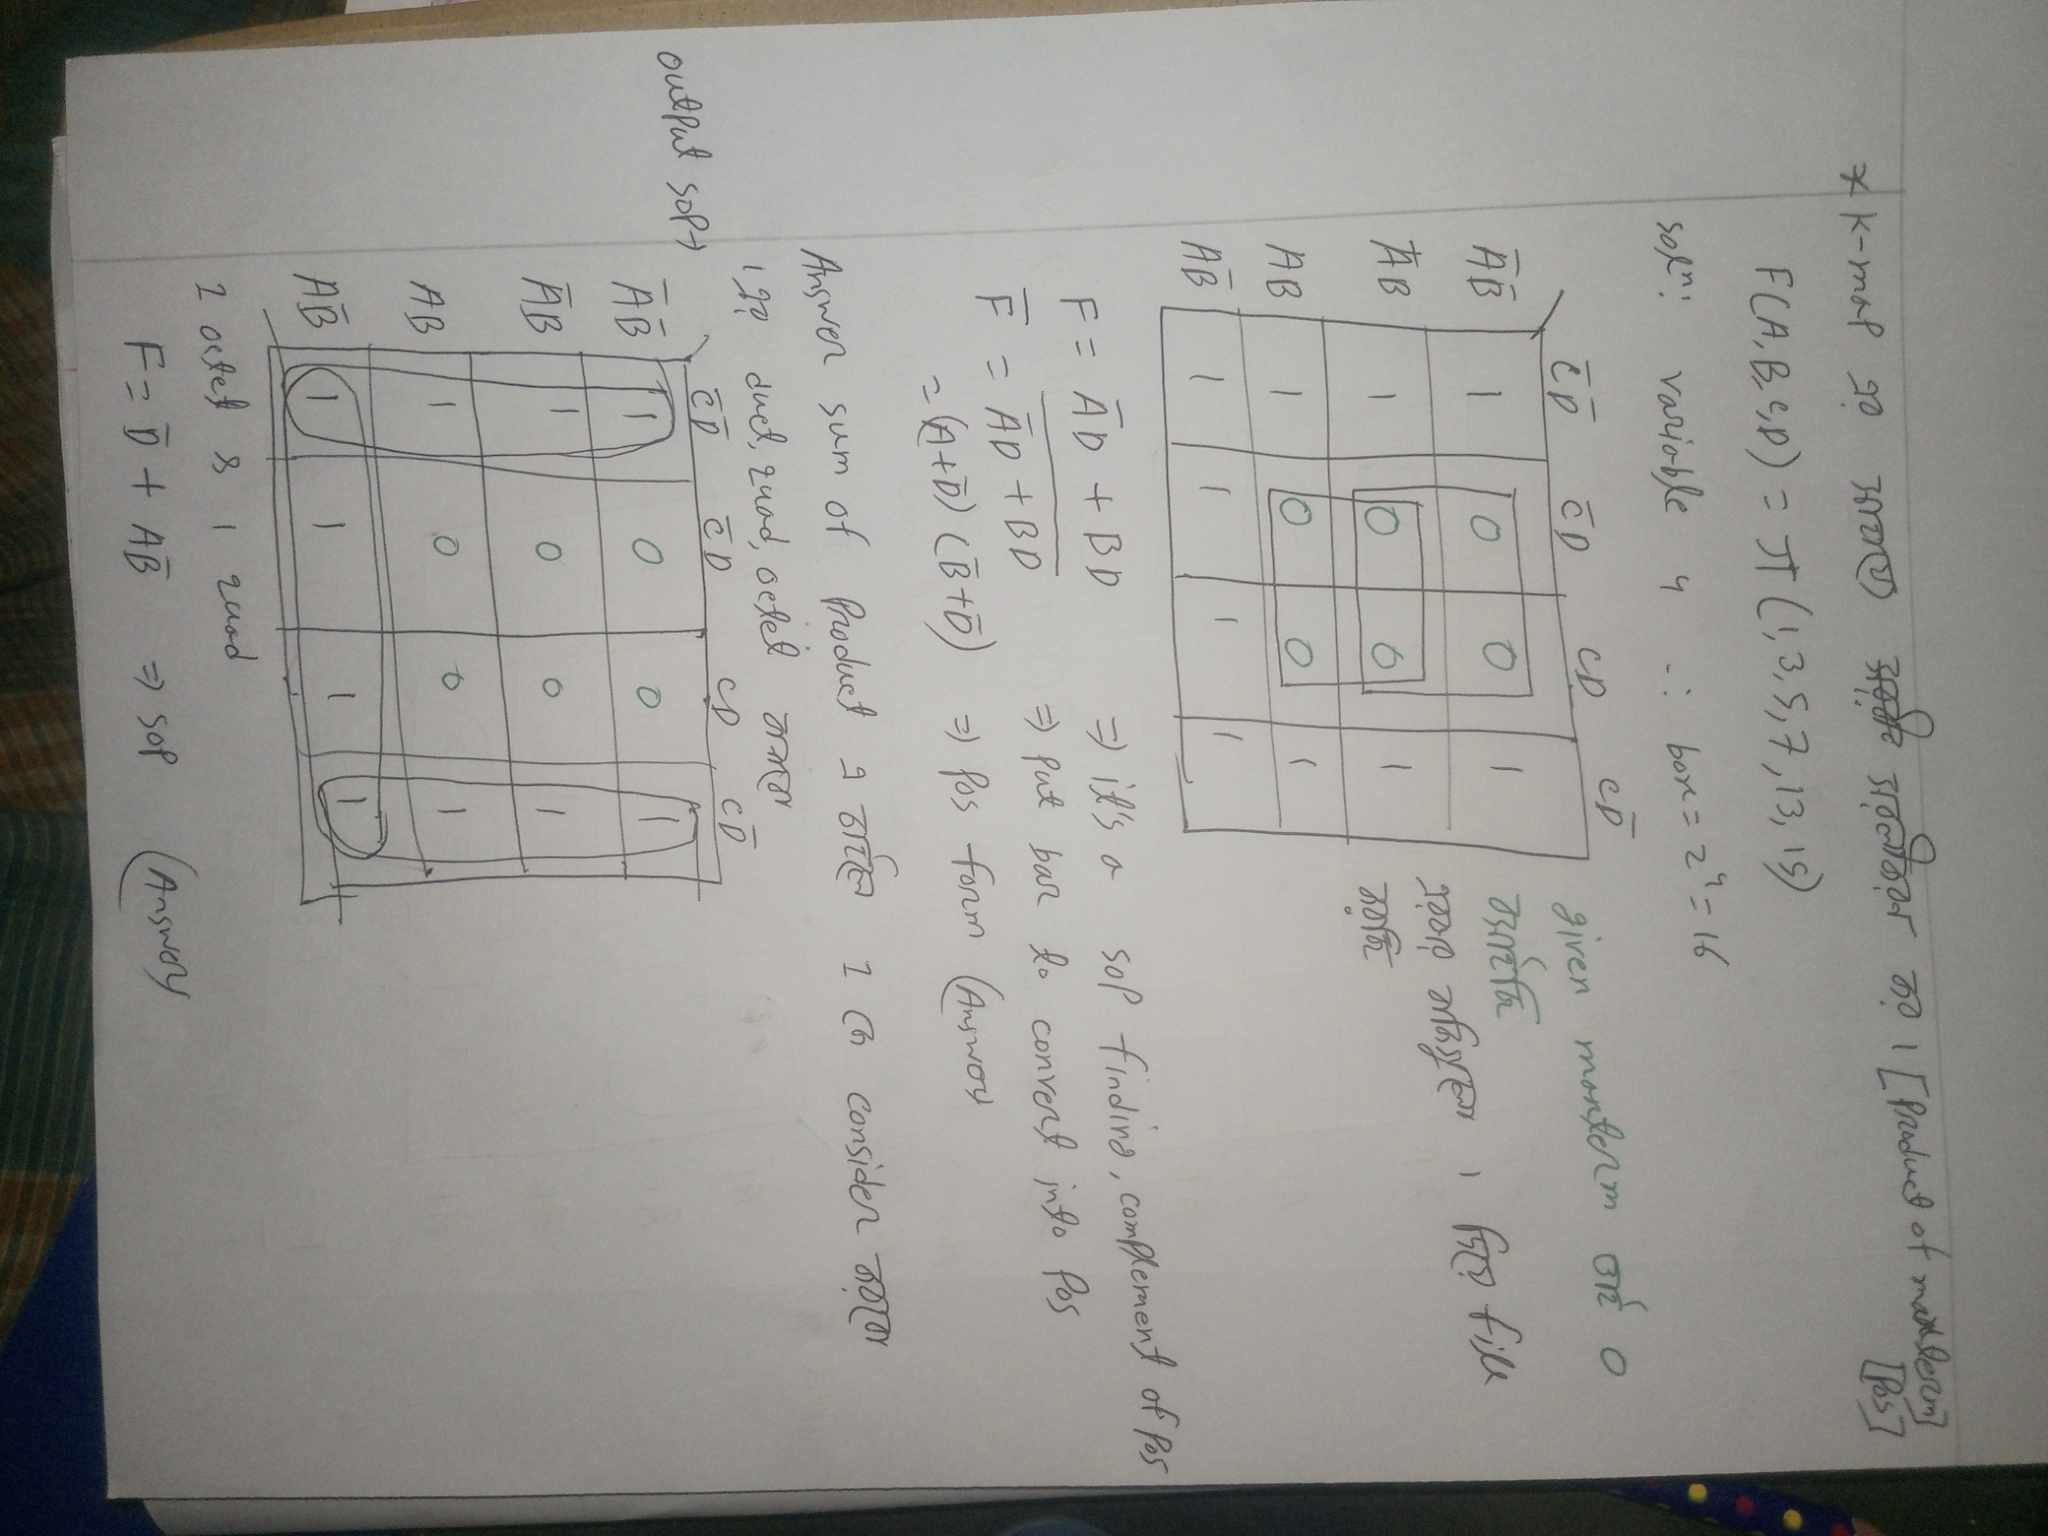 * K-map এর সাহায্যে সরলীকরণ কর। [Product of maxterm]
[Pos]
F(A,B,C,D) = π (1,3,5,7,13,15)
solⁿ: variable 4 ∴ box = 2⁴ = 16
C̅D̅ C̅D CD CD̅
A̅B̅ 1 0 0 1
A̅B 1 0 0 1
AB 1 0 0 1
AB̅ 1 1 1 1
given maxterm তাই 0
বসাইছি
এরবার বাকিগুলো 1 দিয়ে fill
করছি
F = A̅D + BD ⇒ it's a sop finding, complement of Pos
F̅ = \overline{A̅D + BD} ⇒ put bar to convert into Pos
= (A+D̅) (B̅+D̅) ⇒ Pos form (Answer)
Answer sum of Product এ চাইলে 1 কে consider করবো
1 এর duet, quad, octet বানাবো
output sop→
C̅D̅ C̅D CD CD̅
A̅B̅ 1 0 0 1
A̅B 1 0 0 1
AB 1 0 0 1
AB̅ 1 1 1 1
1 octet & 1 quad
F = D̅ + AB̅ ⇒ sop (Answer)